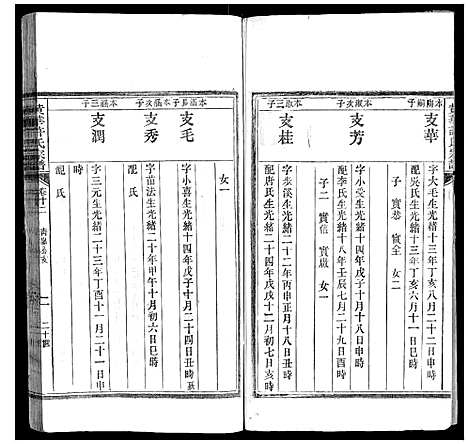 本賜嗣子
支華
字大毛生光緒十三年丁亥八月二十一申時
配吳氏生光緒十三年丁亥六月十一日亥時
子二 實恭 實全 女二
本淑次子
支芳
字小受生光緒十四年戊子十月二十八酉時
配李氏生光緒十八年壬辰七月二十九酉時
子二 實信 實廠 女一
本淑三子
支桂
字泰溪生光緒二十二年丙申正月十八日戌時
配唐氏生光緒二十四年戊戌十二月初七日亥時
女一
支毛
字小喜生光緒十四年戊子十月二十四日丑時
配氏
本滿次子
支秀
字苗法生光緒二十年甲午十月初六日巳時
配氏
本滿三子
支潤
字三元生光緒二十三年丁酉十一月二十一日
時
配氏
許氏宗譜
卷廿一
二十四